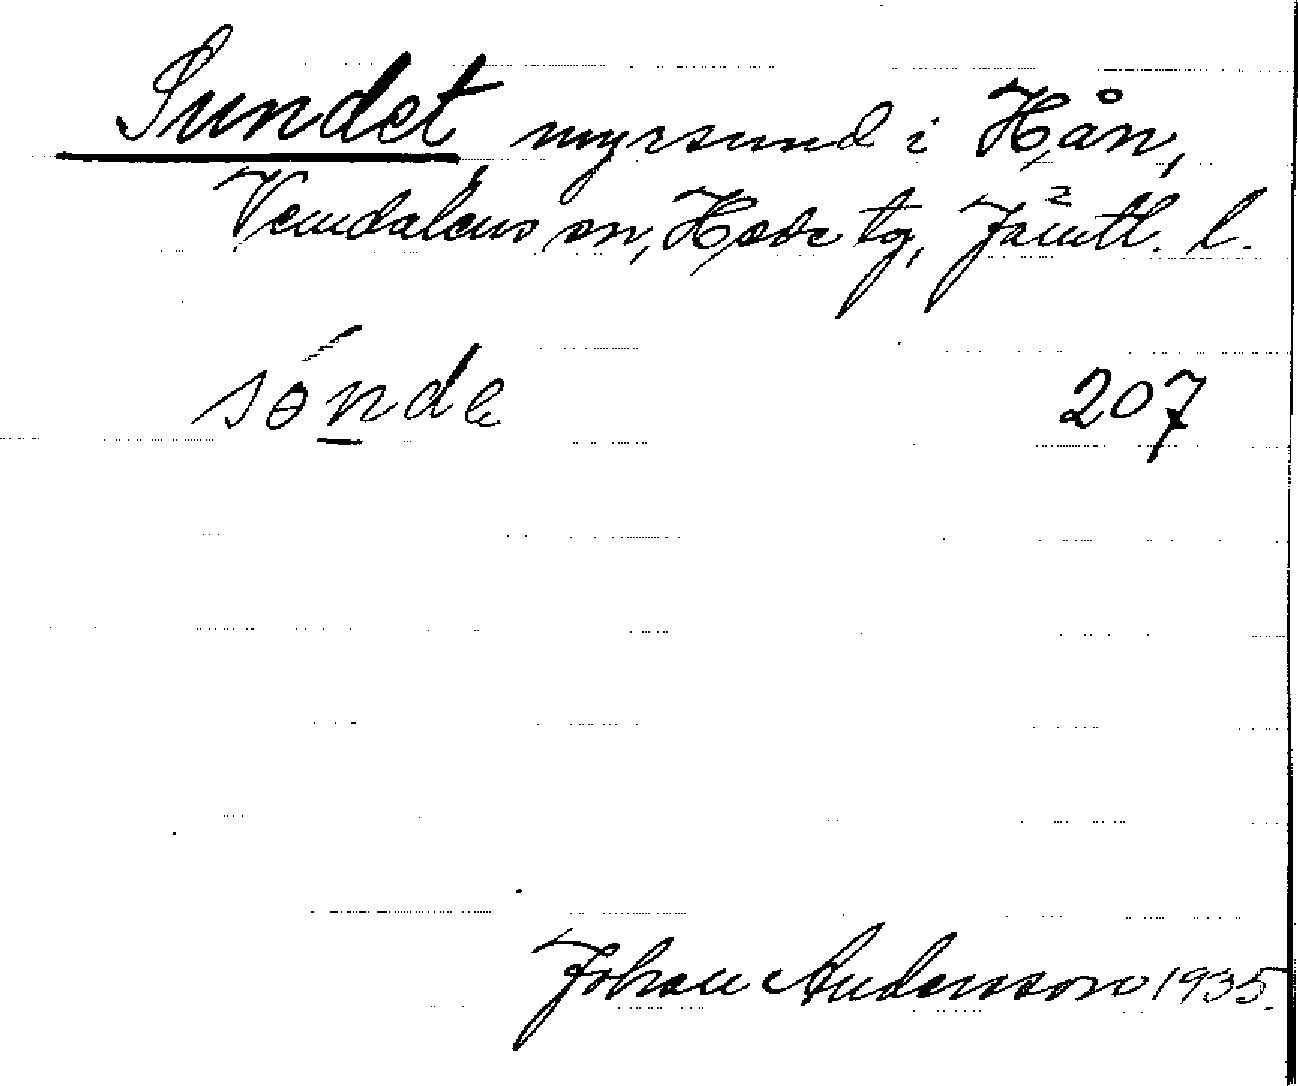 Sundet, myrsund i Hån,
Vemdalens sn, Hede tg, Jämtl. l.
sónde 207
Johan Andersson 1935.